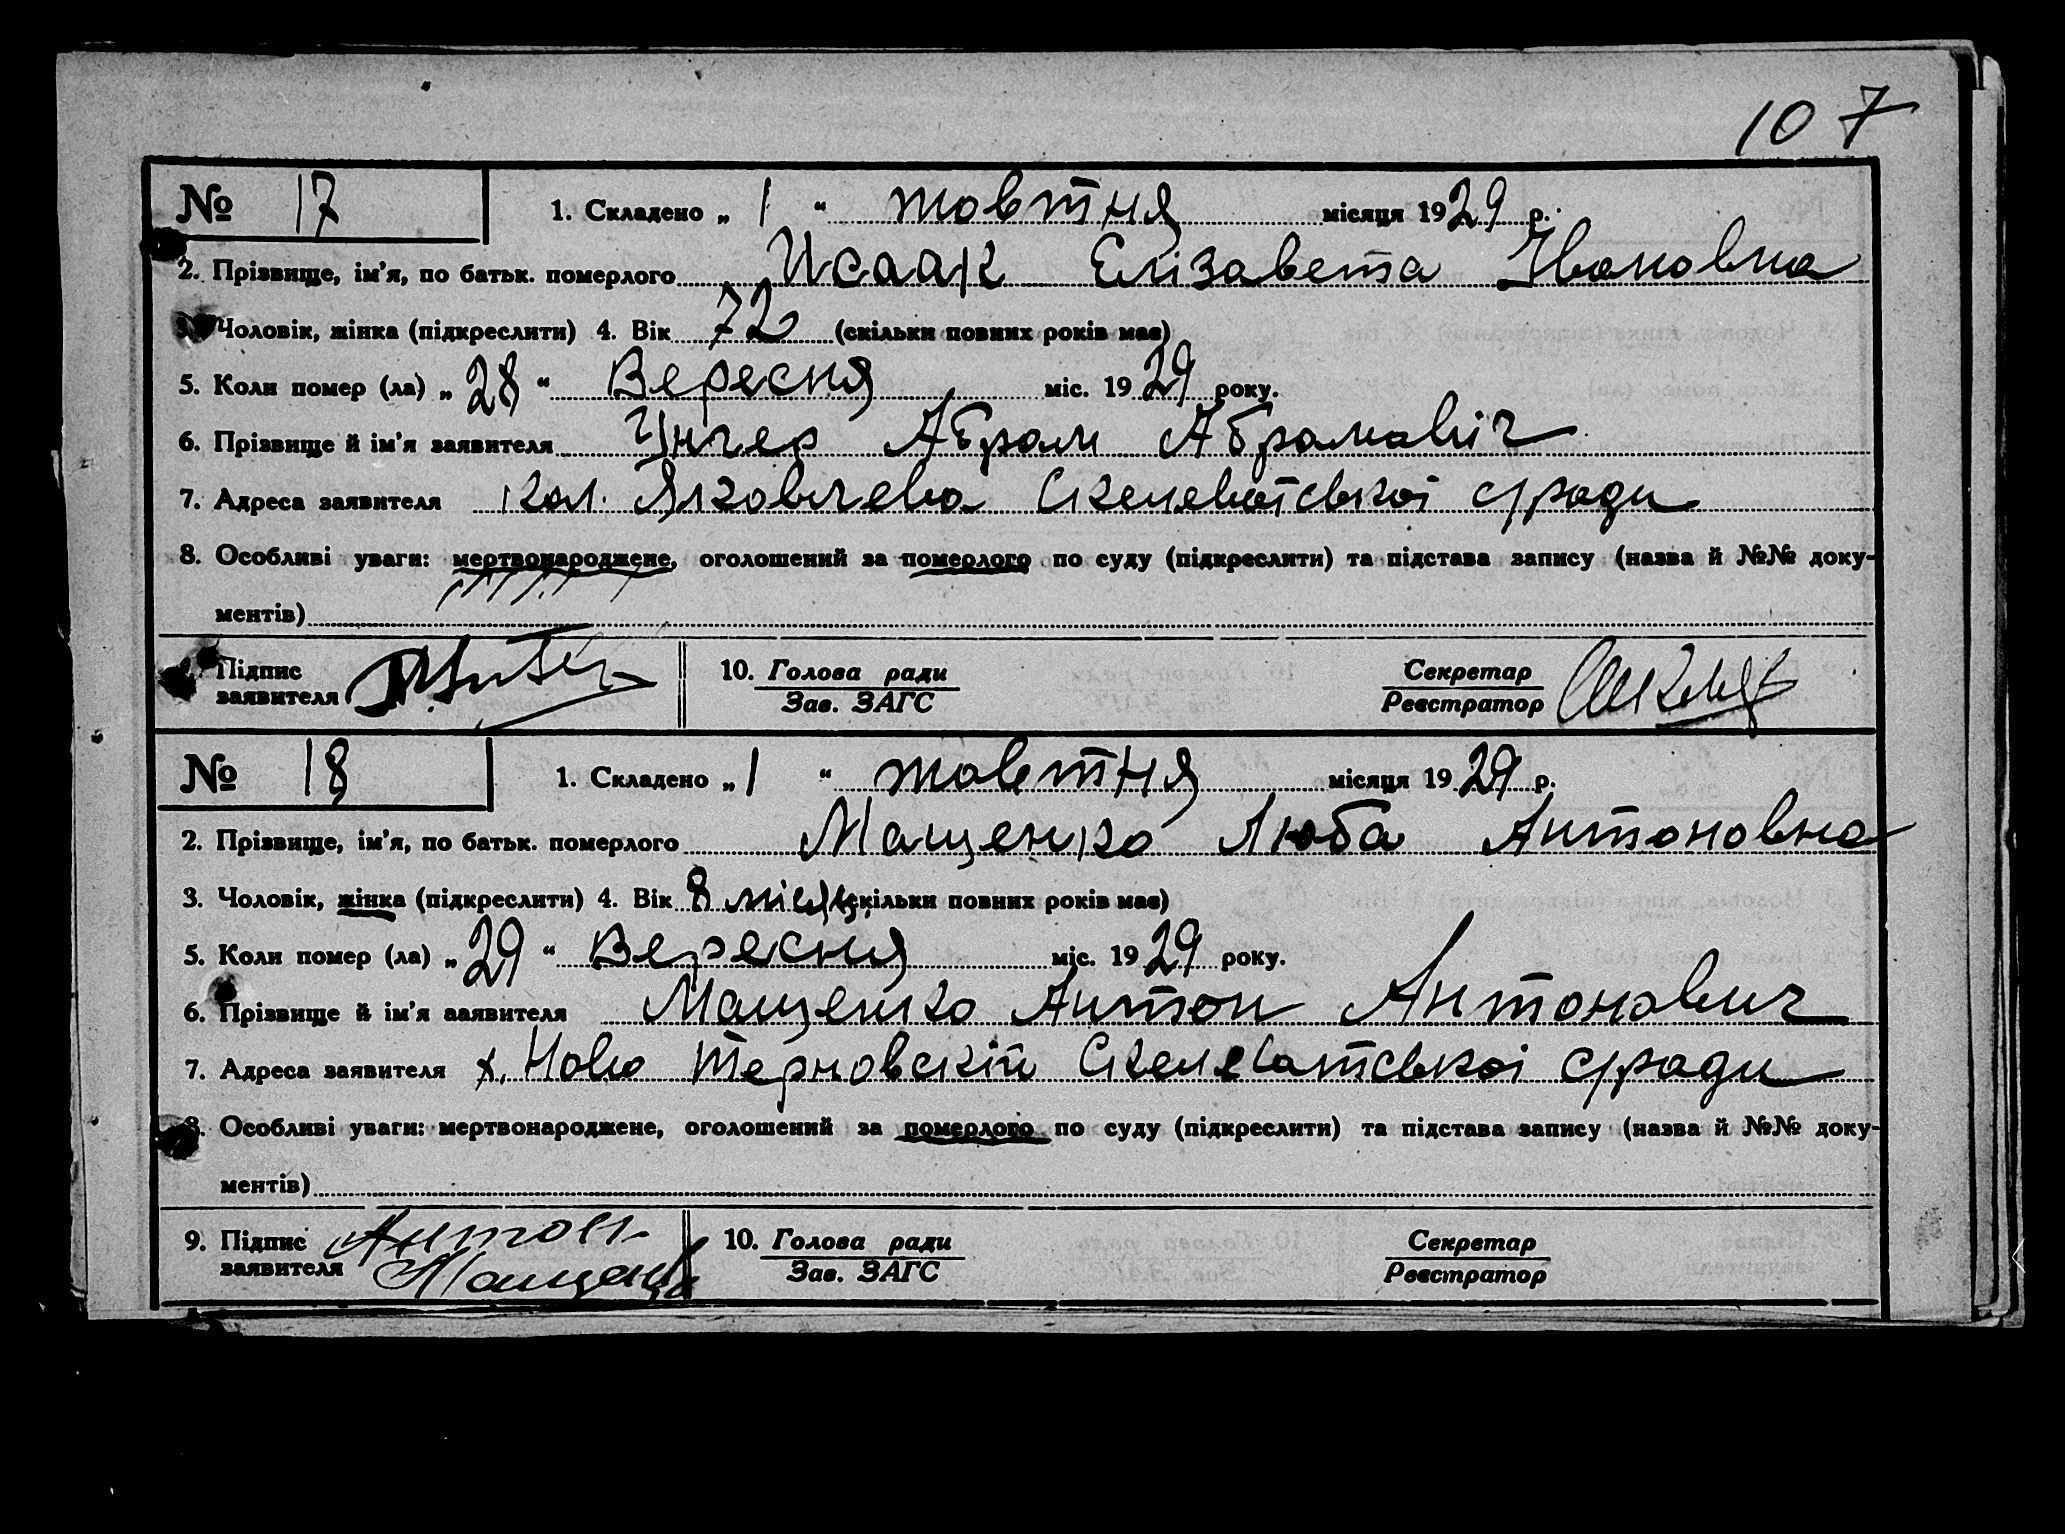 107
№ 17 1. Складено „ 1 “ жовтня місяця 1929 р.
2. Прізвище, ім’я, по батьк. померлого Исаак Елізавета Івановна
Чоловік, жінка (підкреслити) 4. Вік 72 (скільки повних років має)
5. Коли помер (ла) „ 28 “ Вересня міс. 1929 року.
6. Прізвище й ім’я заявителя Унгер Абрам Абрамавіч
7. Адреса заявителя кол. Яковлево Скелеватської с/ради
8. Особливі уваги: мертвонароджене, оголошений за померлого по суду (підкреслити) та підстава запису (назва й №№ доку-
ментів)
Підпис заявителя 10. Голова ради Секретар
Зав. ЗАГС Реєстратор
№ 18 1. Складено „ 1 “ жовтня місяця 1929 р.
2. Прізвище, ім’я, по батьк. померлого Мащенко Люба Антоновна
3. Чоловік, жінка (підкреслити) 4. Вік 8 місяц. (скільки повних років має)
5. Коли помер (ла) „ 29 “ Вересня міс. 1929 року.
6. Прізвище й ім’я заявителя Мащенко Антон Антонович
7. Адреса заявителя х. Ново Терновскій Скелеватської с/ради
8. Особливі уваги: мертвонароджене, оголошений за померлого по суду (підкреслити) та підстава запису (назва й №№ доку-
ментів)
9. Підпис Антон 10. Голова ради Секретар
заявителя Мащенко Зав. ЗАГС Реєстратор